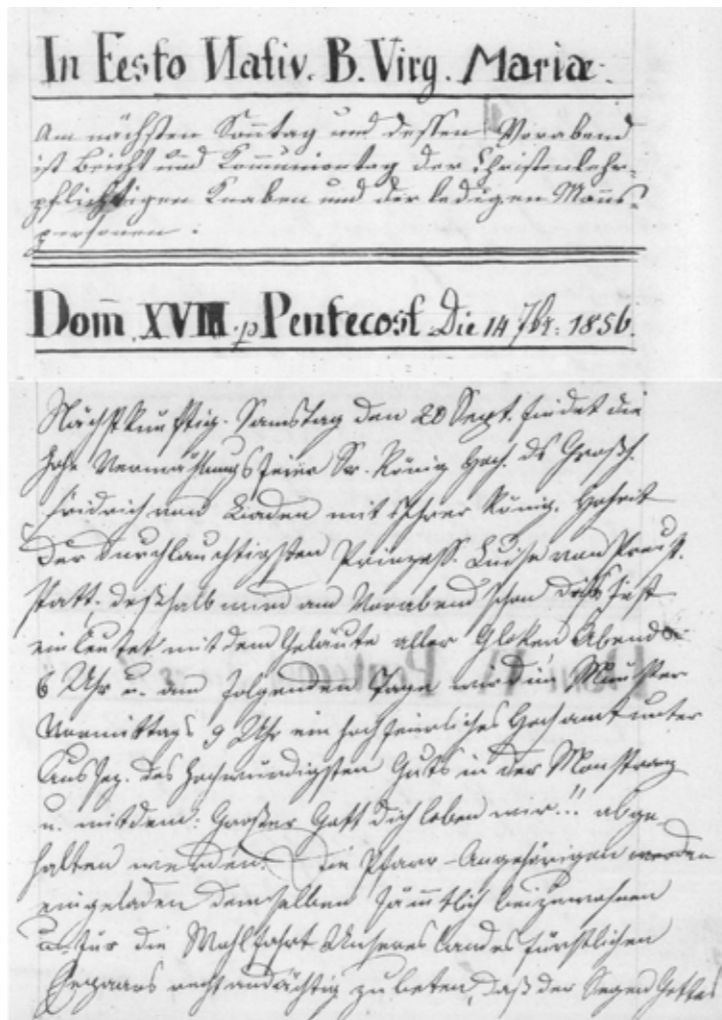 In Festo Nativ. B. Virg. Mariæ.
Am nächsten Sonntag und dessen Vorabend
ist Beicht und Communiontag der Christenlehr-
pflichtigen Knaben und der ledigen Manns-
personen.
Dom. XVIII. p Pentecost Die 14 7br. 1856.
Nächstkünftig. Samstag den 20 Sept. findet die
hohe Vermählungsfeier Sr. König. Hoh. ds Großh.
Fridrich von Baden mit Ihrer König. Hoheit
der durchlauchtigsten Prinzess. Luise von Preuß.
statt, deßhalb wird am Vorabend schon dises Fest
eingeleutet mit dem Geläute aller Gloken Abends
6 Uhr u. am folgenden Tage wird im Münster
Vormittags 9 Uhr ein hochfeierliches Hochamt unter
Aussez. des Hochwürdigsten Guts in der Monstranz
u. mit dem: Großer Gott dich loben wir!! abge-
halten werden. Die Pfarr-Angehörigen werden
eingeladen demselben sämmtlich beizuwohnen
u. für die Wohlfahrt Unseres Landesfürstlichen
Ehepaars recht andächtig zu beten, daß der Segen Gottes